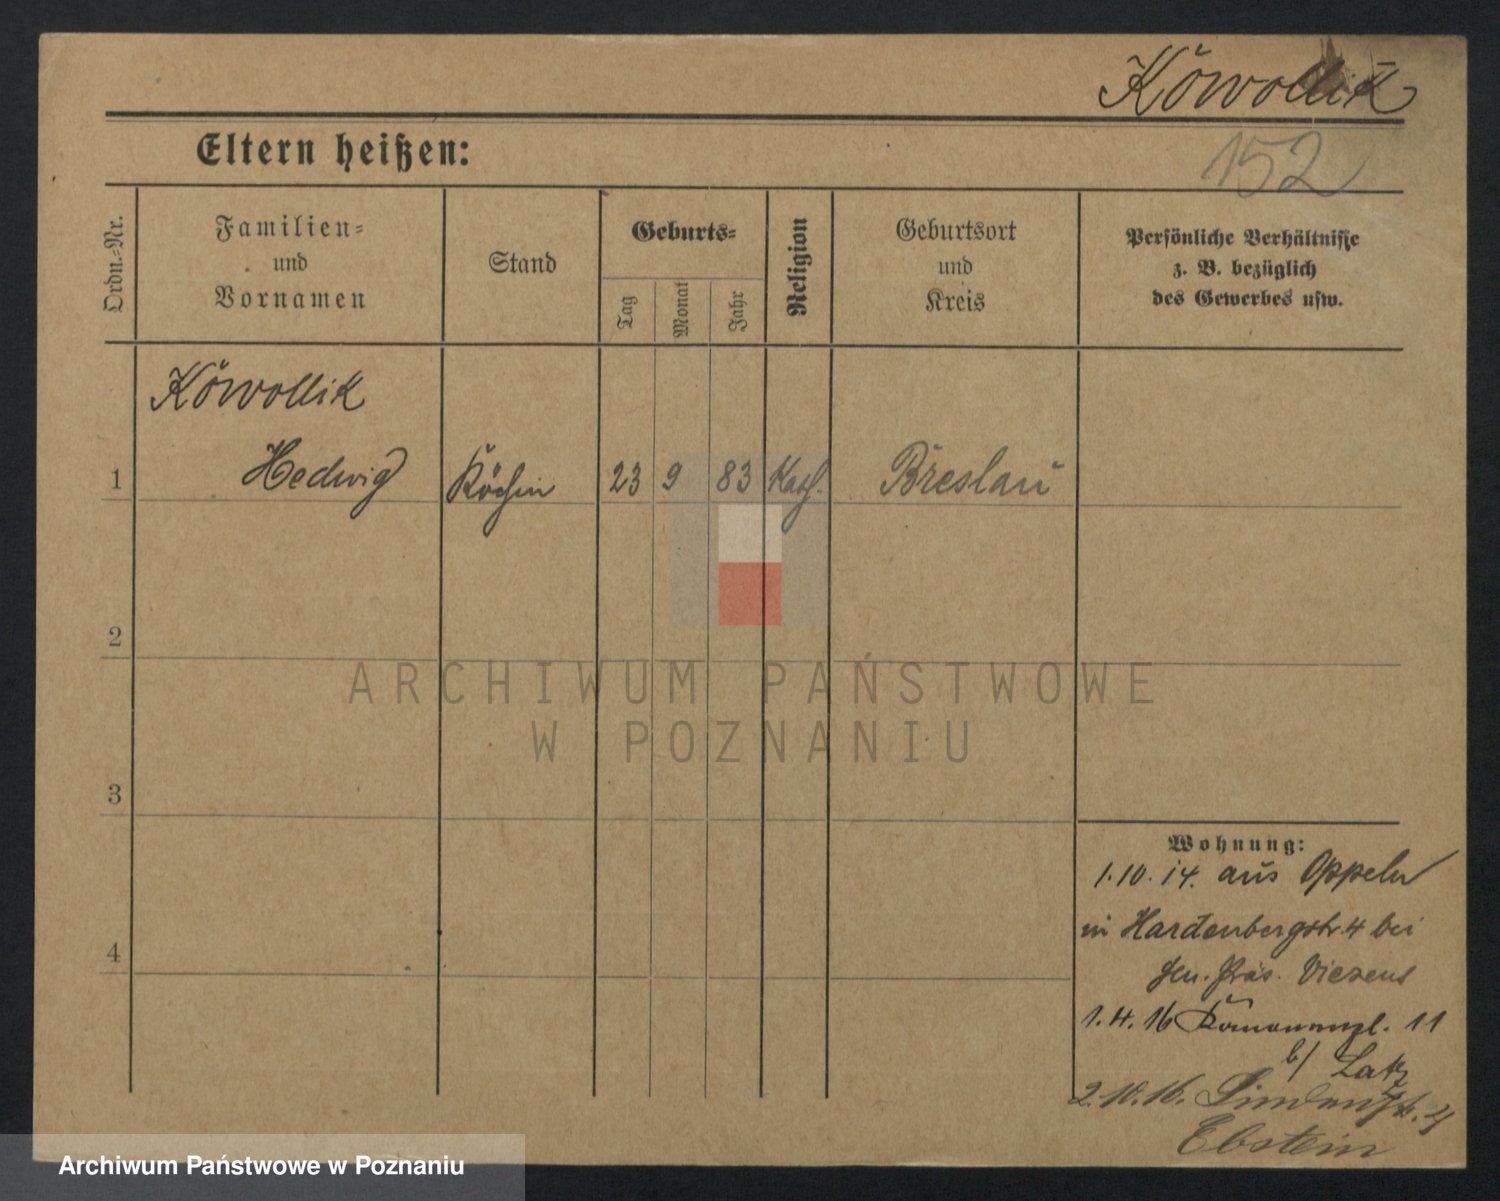 Köwollik
152
Eltern heißen:
Ordn.-Nr.
Familien-
und
Vornamen
Stand
Geburts-
Tag
Monat
Jahr
Religion
Geburtsort
und
Kreis
Persönliche Verhältnisse
z. B. bezüglich
des Gewerbes usw.
Köwollik
1 Hedwig Köchin 23 9 83 Kath. Breslau
2
3
4
Wohnung:
1.10.14. aus Oppeln
in Hardenbergstr. 4 bei
Präs.
1.4.16 11
b/ Latz
2.10.16. 4
Ebstein
ARCHIWUM PAŃSTWOWE
W POZNANIU
Archiwum Państwowe w Poznaniu